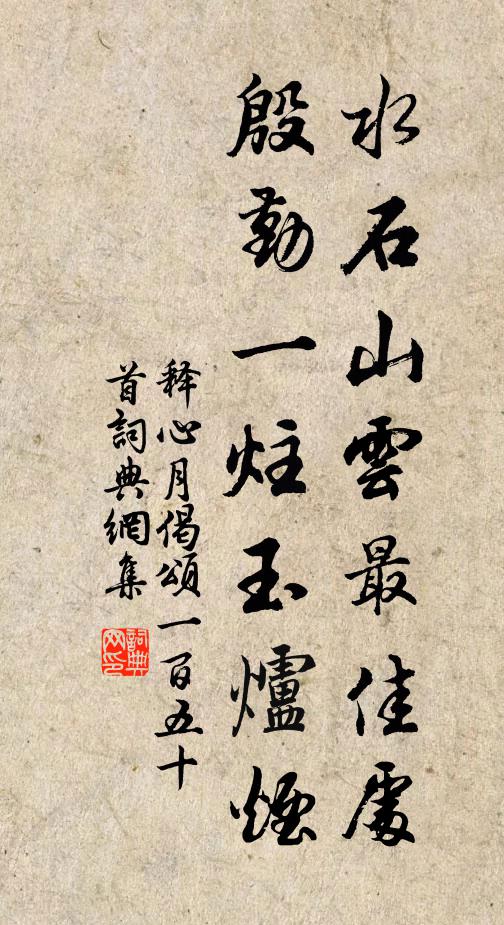 水石山雲最佳處
殷勤一炷玉爐煙
释心月偈頌一百五十
首詞典網集
詞典网印